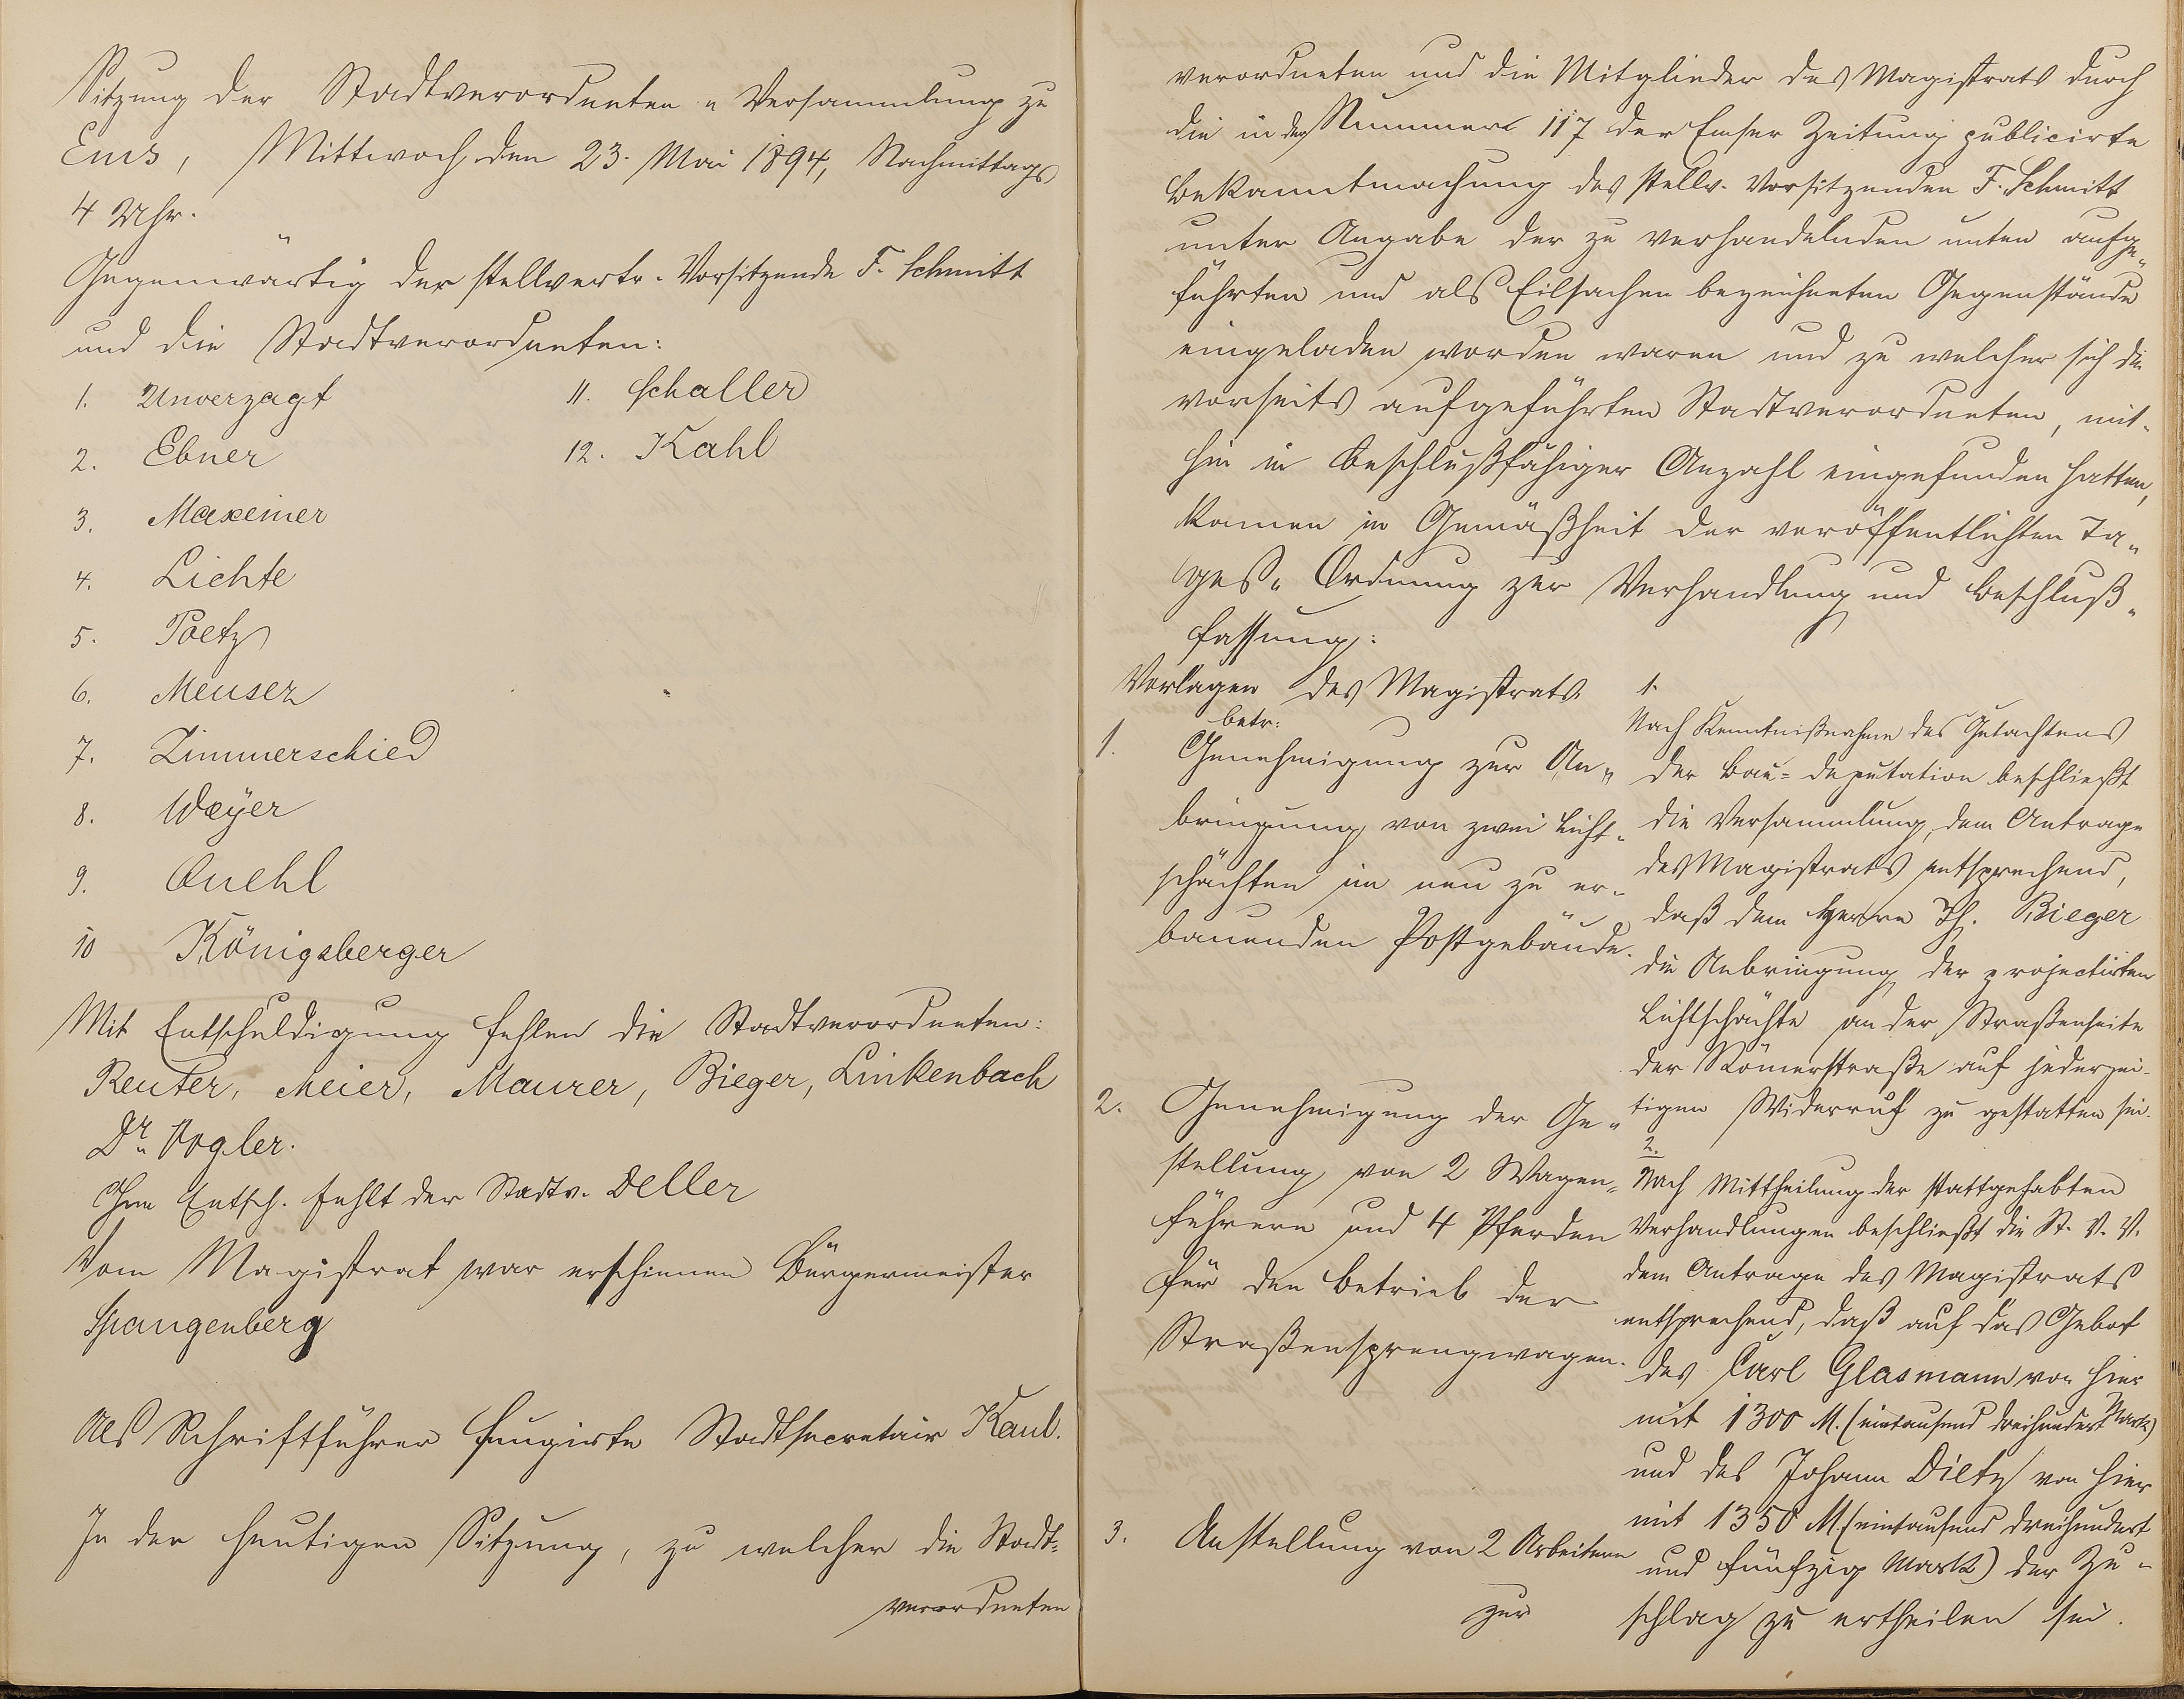 Sitzung der Stadtverordneten-Versammlung zu
Ems, Mittwoch den 23. Mai 1894, Nachmittags
4 Uhr.
Gegenwärtig der stellvertr. Vorsitzende F. Schmitt
und die Stadtverordneten:
1. Unverzagt
2. Ebner
3. Maxeiner
4. Lichte
5. Poetz
6. Meuser
7. Zimmerschied
8. Weyer
9. Quehl
10 Königsberger
11. Schaller
12. Kahl
Mit Entschuldigung fehlen die Stadtverordneten:
Reuter, Meier, Maurer, Bieger, Linkenbach
Dr. Vogler.
Ohne Entsch. fehlt der Stadtv. Deller
Vom Magistrat war erschienen Bürgermeister
Spangenberg
Als Schriftführer fungirte Stadtsecretair Kaul.
In der heutigen Sitzung, zu welcher die Stadt-
verordneten
verordneten und die Mitglieder des Magistrats durch
die in der Nummer 117 der Emser Zeitung publicirte
Bekanntmachung des stellv. Vorsitzenden F. Schmitt
unter Angabe der zu verhandelnden unten aufge-
führten und als Eilsachen bezeichneten Gegenstände
eingeladen worden waren und zu welcher sich die
vorseits aufgeführten Stadtverordneten, mit-
hin in beschlußfähiger Anzahl eingefunden hatten,
kamen in Gemäßheit der veröffentlichten Ta-
ges-Ordnung zur Verhandlung und Beschluß-
fassung:
Vorlagen des Magistrats
betr:
1. Genehmigung zur An-
bringung von zwei Licht-
schächten im neu zu er-
bauenden Postgebäude.
1.
Nach Kenntnißnahme des Gutachtens
der Bau-Deputation beschließt
die Versammlung, dem Antrage
des Magistrats entsprechend,
daß dem Herrn Th. Bieger
die Anbringung der projectirten
Lichtschächte an der Straßenseite
der Römerstraße auf jederzei-
tigen Widerruf zu gestatten sei.
2. Genehmigung der Ge-
stellung von 2 Wagen-
führern und 4 Pferden
für den Betrieb der
Straßensprengwagen.
2.
Nach Mittheilung der stattgehabten
Verhandlungen beschließt die St. V. V.
dem Antrage des Magistrats
entsprechend, daß auf das Gebot
des Carl Glasmann von hier
mit 1300 M. (eintausend dreihundert Mark)
und des Johann Dietz von hier
mit 1350 M. (eintausend dreihundert
und fünfzig Mark) der Zu-
schlag zu ertheilen sei.
3. Anstellung von 2 Arbeitern
zur